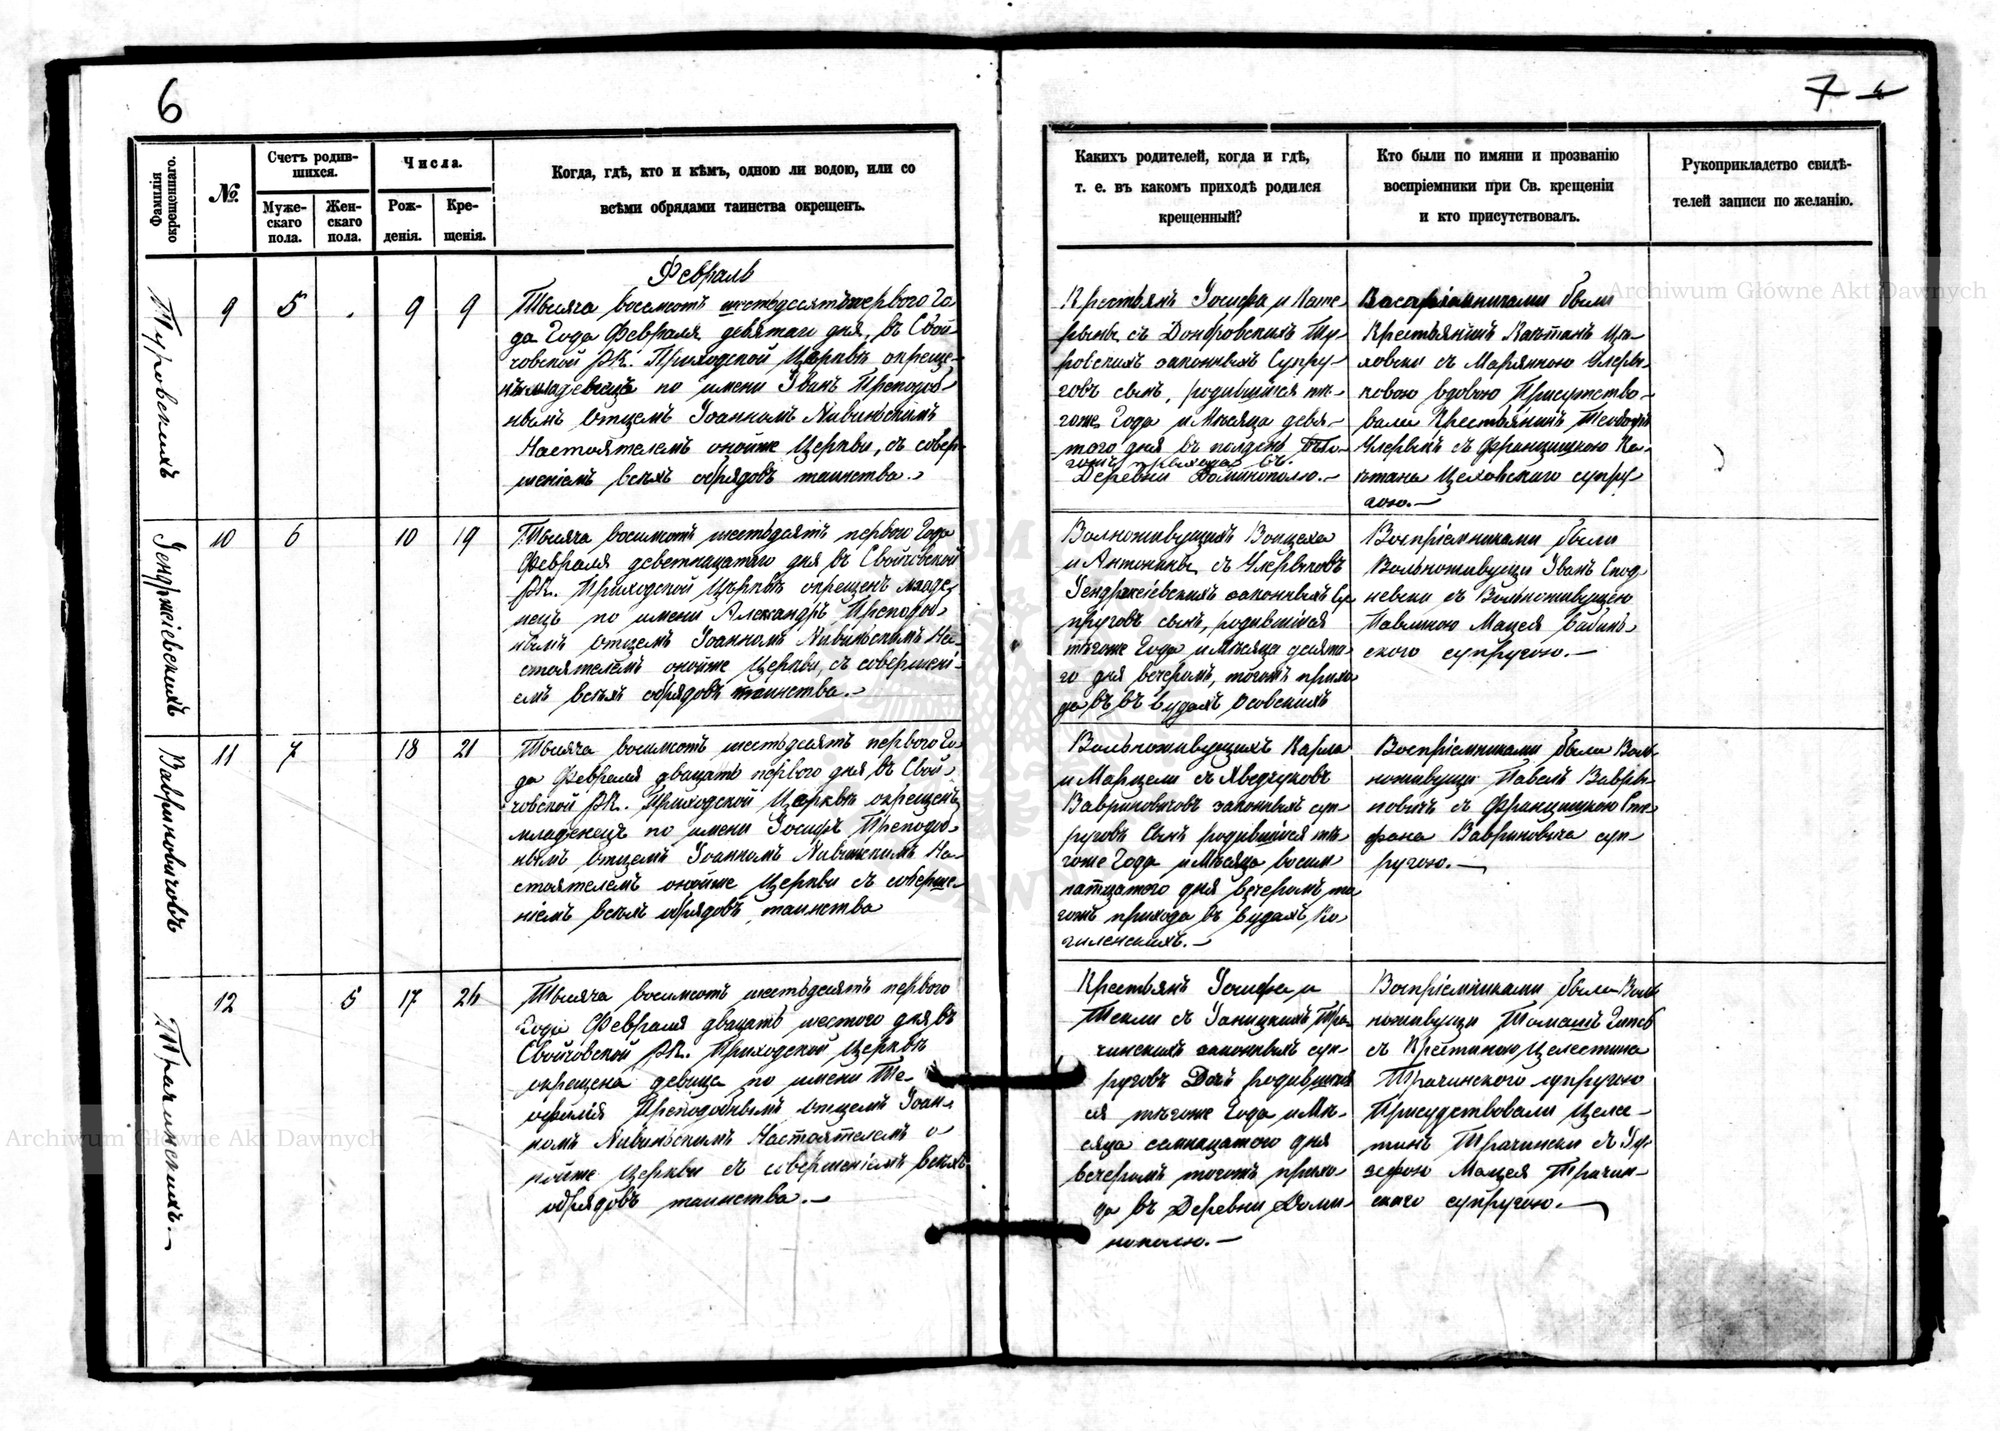 6
7 4
Фамилія окрещеннаго.
№.
Счетъ родив-
шихся.
Муже-
скаго
пола.
Жен-
скаго
пола.
Числа.
Рож-
денія.
Кре-
щенія.
Когда, гдѣ, кто и кѣмъ, одною ли водою, или со
всѣми обрядами таинства окрещенъ.
Какихъ родителей, когда и гдѣ,
т. е. въ какомъ приходѣ родился
крещенный?
Кто были по имяни и прозванію
воспріемники при Св. крещеніи
и кто присутствовалъ.
Рукоприкладство свидѣ-
телей записи по желанію.
Февраль
Туровскихъ
9 5 . 9 9
Тысяча восемсотъ шестьдесятъ первого Го
да Года Февраля девятаго дня, въ Свой-
човской РК. Приходской Церквѣ окреще-
нъ младенецъ по имени Иванъ Преподоб-
нымъ Отцемъ Іоанномъ Настоятелемъ онойже Церкви, съ совер-
шеніемъ всѣхъ обрядовъ таинства.-
Крестьянъ Іосифа и Кате
рины съ Домбровскихъ Ту-
ровскихъ законныхъ Супру-
говъ сынъ, родившійся то-
гоже Года и Мѣсяца девя-
того дня въ полдень того-
гожъ прихода въ
Деревни Доминополю.-
Воспріемниками были
Крестьянинъ Каетанъ Це-
ховски съ Маріянною
вдовою Присутство-
вали Крестьянинъ
съ Францишкою Ка-
етана Цеховскаго супру-
гою.-
Гендржіевскихъ
10 6 10 19
Тысяча восимсотъ шестьдесятъ первого Года
Февраля деветнацатого дня въ Свойчовской
РК. Приходской Церквѣ окрещенъ младе-
нецъ по имени Александръ, Преподоб-
нымъ Отцемъ Іоанномъ На-
стоятелемъ онойже Церкви, съ совершені-
емъ всѣхъ обрядовъ таинства.-
Вольноживущихъ Войцеха
и Антонины съ
Гендржеіевскихъ законныхъ Су
пруговъ сынъ, родившійся
тогоже Года и Мѣсяца десята-
го дня вечеромъ, тогожъ прихо
да въ въ Будахъ Осовскихъ
Воспріемниками были
Вольноживущи Иванъ
съ Вольноживущею
Павлиною Мацея Бабинь-
ского супругою.-
Вавриновичовъ
11 7 18 21
Тысяча восимсотъ шестьдесятъ первого Го-
да Февраля двацать первого дня въ Свой-
човской РК. Приходской Церквѣ окрещенъ
младенецъ по имени Іосифъ Преподоб-
нымъ Отцемъ Іоанномъ На-
стоятелемъ онойже Церкви съ соверше-
ніемъ всѣхъ обрядовъ таинства
Вольноживущихъ Карла
и Марцели съ Яведчуковъ
Вавриновичовъ законныхъ суп-
руговъ Сынъ родившійся то-
гоже Года и Мѣсяца восим
натцатого дня вечеромъ то
гожъ прихода въ Будахъ
Воспріемниками были Воль-
ноживущи Павелъ Ваври-
новичъ съ Францишкою Сте-
фана Вавриновича суп-
ругою.-
Трачинскихъ.-
12 5 17 26
Тысяча восимсотъ шестьдесятъ первого
Года Февраля двацать шестого дня въ
Свойчовской РК. Приходской Церквѣ
окрещена девица по имени Те-
офилія Преподобнымъ Отцемъ Іоан-
номъ Настоятелемъ о-
нойже Церкви съ совершеніемъ всѣхъ
обрядовъ таинства.-
Крестьянъ Іосифа и
Текли съ Яницкихъ Тра-
чинскихъ законныхъ суп-
руговъ Дочь родивша
ся тогоже Года и Мѣ-
сяца семнацатого дня
вечеромъ тогожъ прихо-
да въ Деревни Доми-
нополю.-
Воспріемниками были Воль
ноживущи Томашъ
съ Крестиною Целестина
Трачинского супругою
Присудствовали Целе-
стинъ Трачински съ Ю-
зефою Мацея Трачин-
скаго супругою.-
Archiwum Główne Akt Dawnych
Archiwum Główne Akt Dawnych